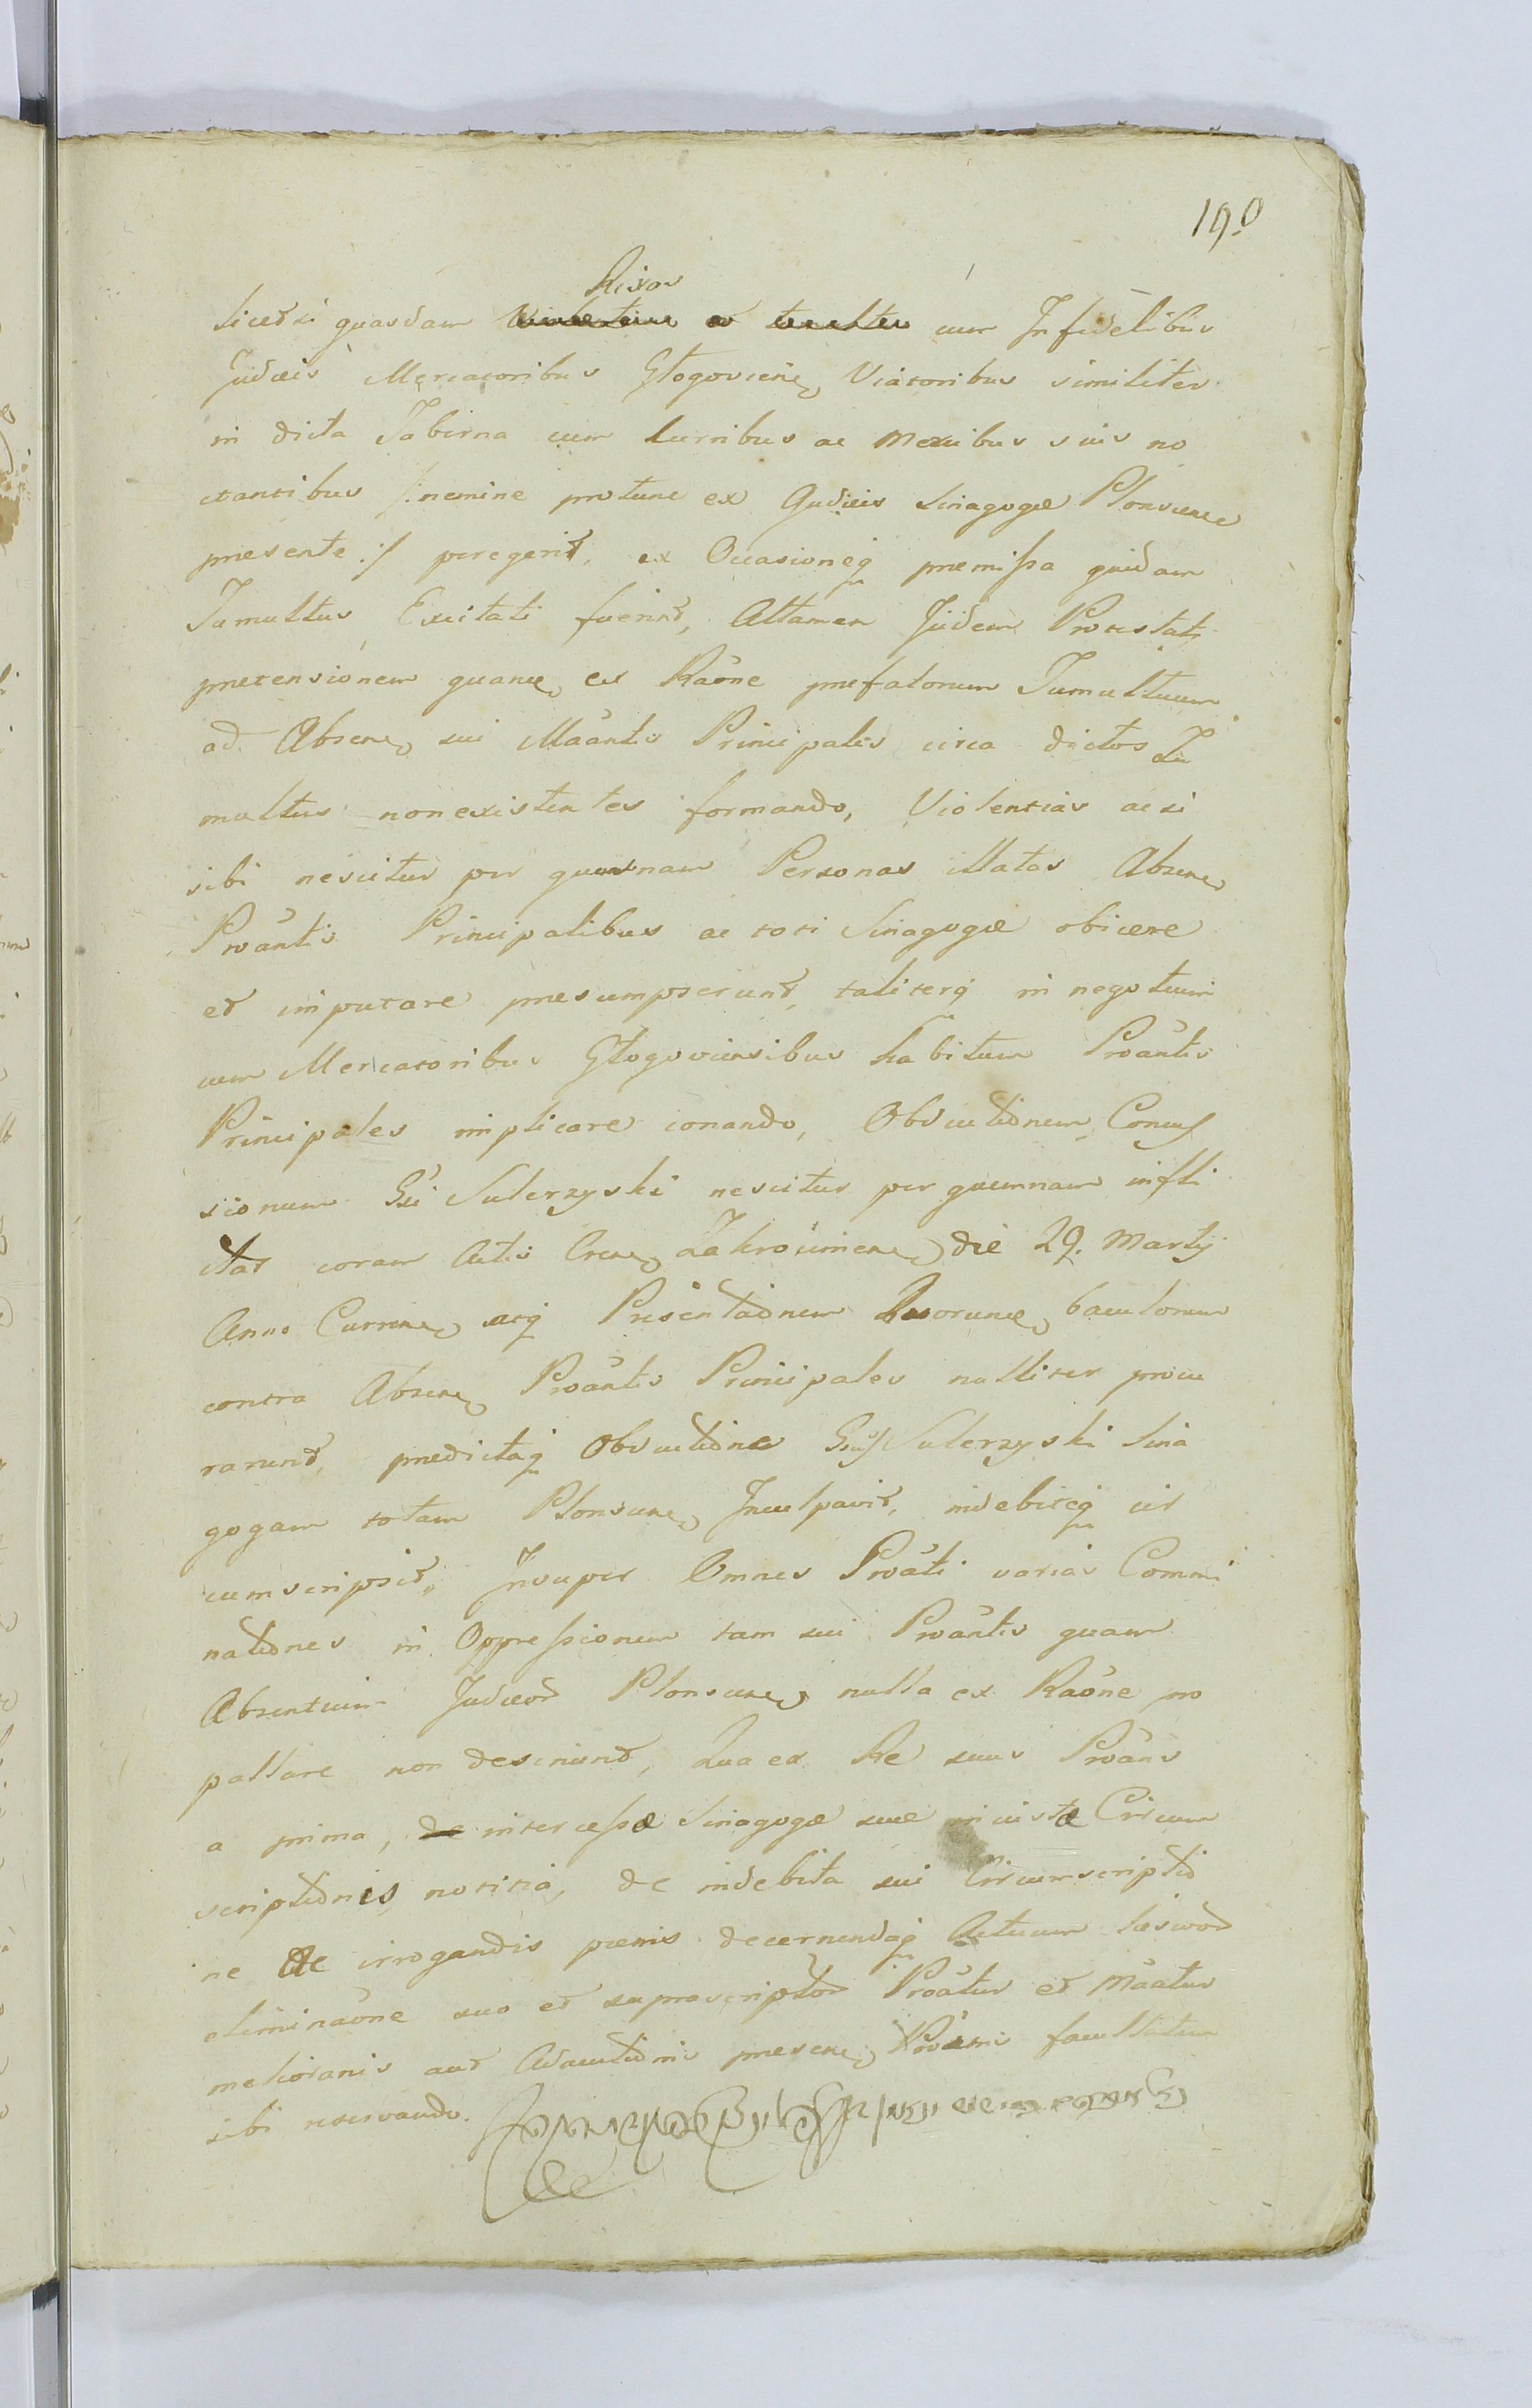 190
Rixas
Licet si quasdam cum Infidelibus
Judæis Mercatoribus Głogovien, Viatoribus similiter
in dicta Taberna cum Curribus ac Mercibus suis no
ctantibus /: nemine protunc ex Judæis Sinagogæ Plonscen
presente :/ peregerit, ex Occasioneq premissa quidam
Tumultus Excitati fuerint, Attamen Iidem Protestati
pretensionem quanc, ex Raone prefatorum Tumultuum
ad Absen, sui Maantis Principales circa dictos Tu
multus non existentes formando, Violentias acsi
sibi nescitur per quasnam Personas illatas Absen,
Proantis Principalibus ac toti Sinagogæ obicere
et imputare presumpserunt, taliterq in negotium
cum Mercatoribus Głogoviensibus habitum Proantis
Principales implicare conando, Obductionem Concus
sionum Gsi Sulerzyski nescitur per quemnam infli
ctas coram Actis Cren, Zakrocimen, die 29. Martij
Anno Curren, atq Presentationem Duorunc, baculorum
contra Absen, Proantis Principales nulliter procu
rarunt, predictaq Obductione Gsus Sulerzyski Sina
gogam totam Plonscen, Inculpavit, indebiteq cir
cumscripsit, Insuper Omnes Proati varias Commi
nationes in Oppressionem tam sui Proantis quam
Absentium Judæor Plonscen, nulla ex Raone pro
pallare non desinunt, Qua ex Re suus Proans
a prima, intercessæ Sinagogæ suæ iniustæ Circum
scriptionis notitia, de indebita sui Circumscriptio
ne De irrogandis pœnis decernendaq Actuum læsivor
eliminaone suo et suprascriptor Proatur et Maatur
melioranis aut Adauctionis presen, Proanis facultatem
sibi reservando.